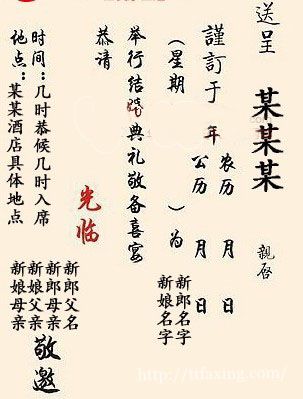 送呈
某某某
親启
謹訂于 年 农历 月 日
公历 月 日
(星期 )为
新郎名字
新娘名字
举行结婚典礼敬备喜宴
恭请
光临
时间：几时恭候几时入席
地点：某某酒店具体地点
新郎父名
新郎母亲
新娘父亲
新娘母亲
敬邀
http://ttfaxing.com/